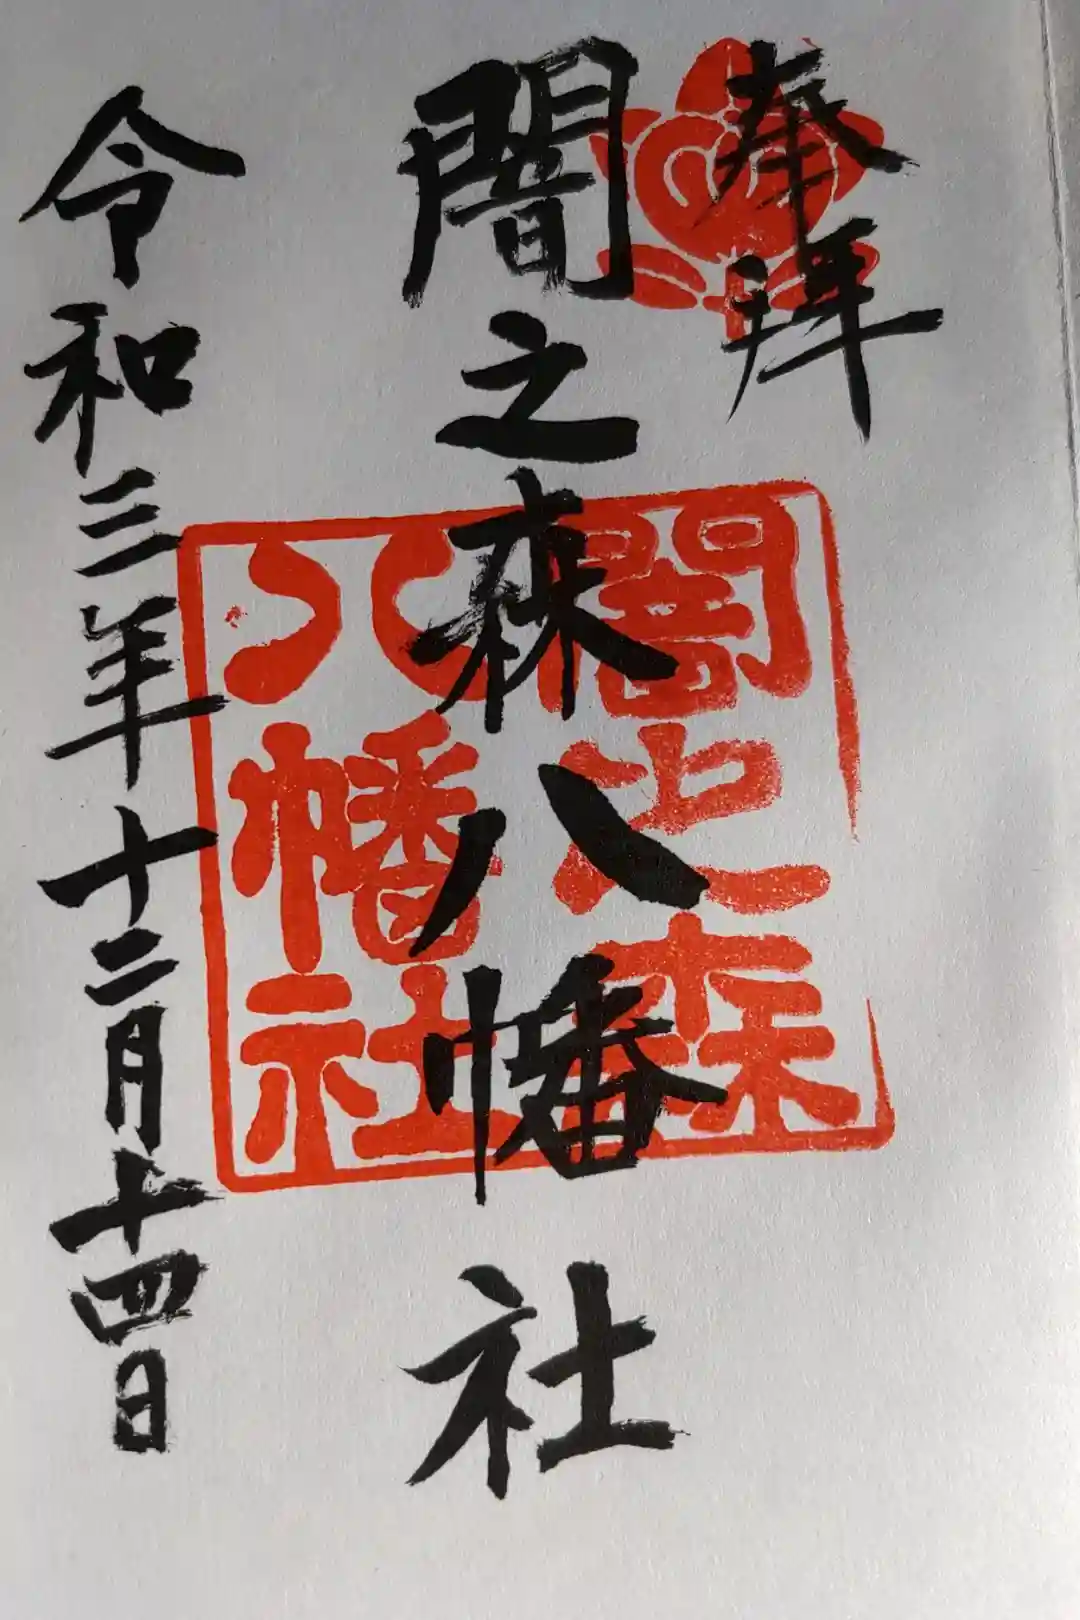 奉拝
闇之森八幡社
闇之森
八幡社
令和三年十二月十四日